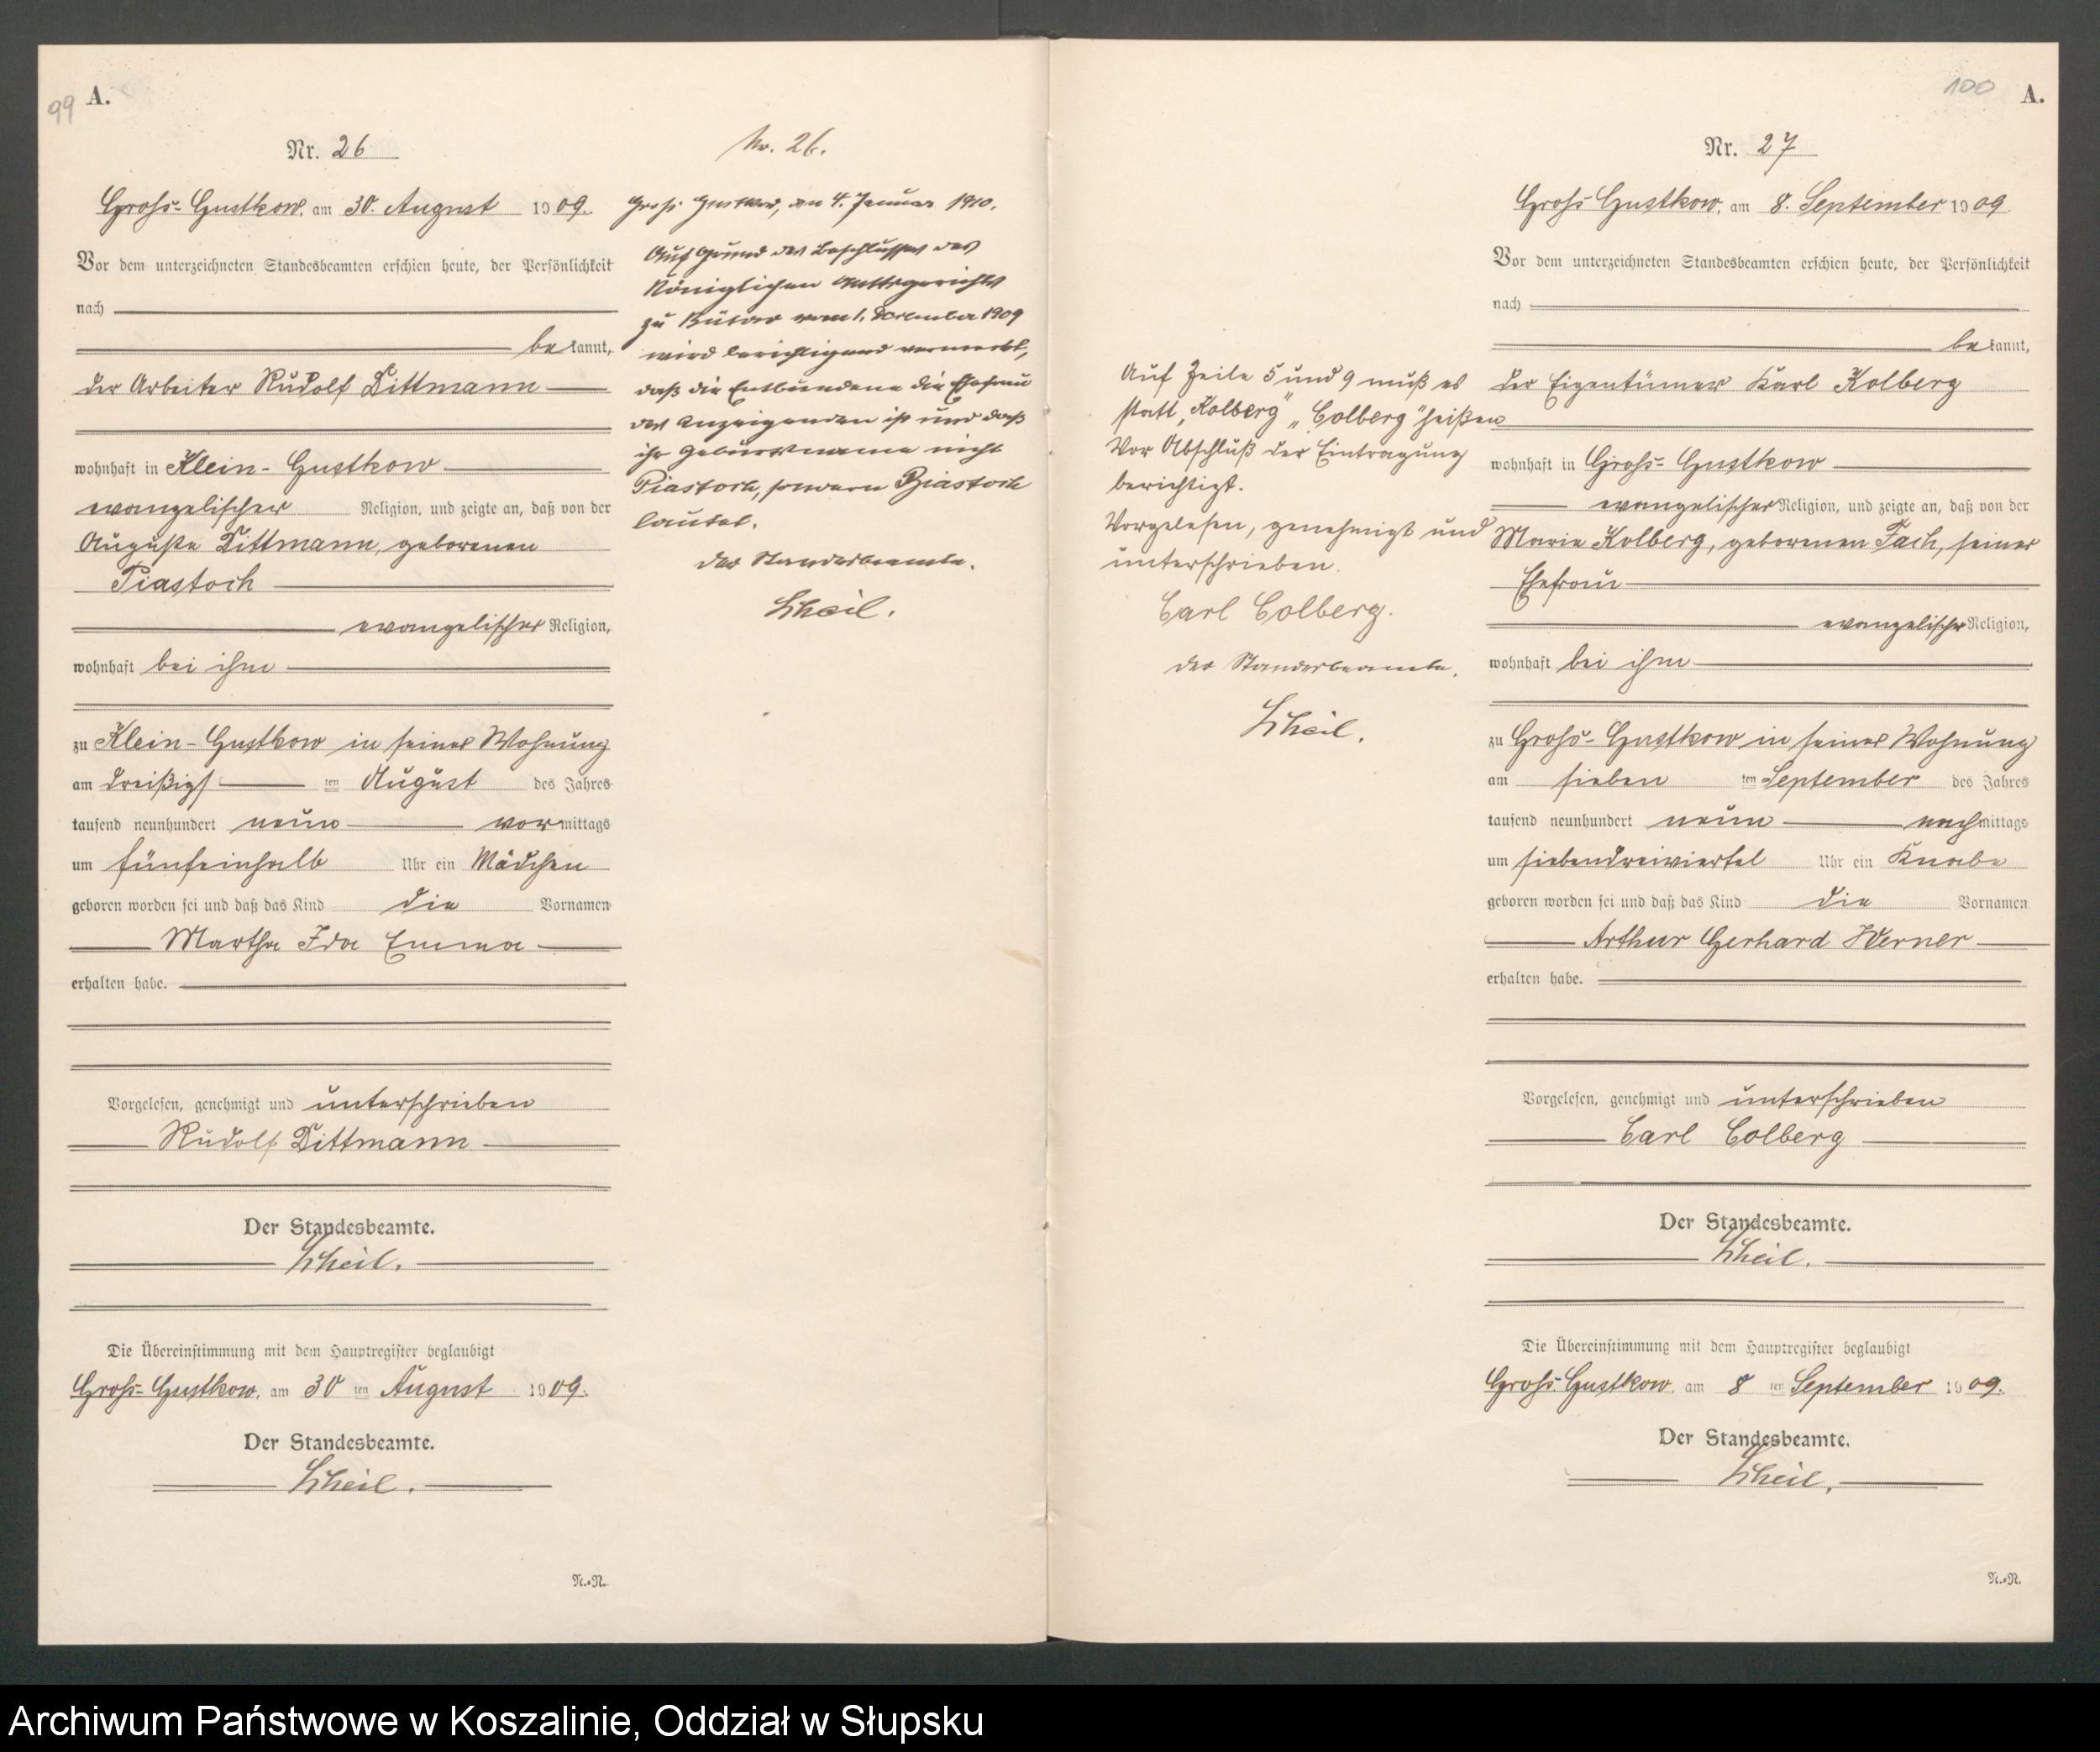 99 A.
Nr. 26
Groß-Gustkow, am 30. August 1909.
Vor dem unterzeichneten Standesbeamten erschien heute, der Persönlichkeit
nach
bekannt,
der Arbeiter Rudolf Dittmann
wohnhaft in Klein-Gustkow
evangelischer Religion, und zeigte an, daß von der
Auguste Dittmann, geborenen
Piastoch
evangelischer Religion,
wohnhaft bei ihm
zu Klein-Gustkow in seiner Wohnung
am dreißigsten August des Jahres
tausend neunhundert neun vormittags
um fünfeinhalb Uhr ein Mädchen
geboren worden sei und daß das Kind die Vornamen
Martha Ida Emma
erhalten habe.
Vorgelesen, genehmigt und unterschrieben
Rudolf Dittmann
Der Standesbeamte.
Die Übereinstimmung mit dem Hauptregister beglaubigt
Groß-Gustkow, am 30ten August 1909.
Der Standesbeamte.
N.=R.
Nr. 26.
Groß Gustkow, den 4. Januar 1910.
Auf Grund des Beschlusses des
Königlichen Amtsgerichts
zu Bütow vom 1. Dezember 1909
wird berichtigend vermerkt,
daß die Entbundene die Ehefrau
des Anzeigenden ist und daß
ihr Geburtsname nicht
Piastoch, sondern
lautet.
Der Standesbeamte.
Auf Zeile 5 und 9 muß es
statt „Kolberg" „Colberg" heißen
Vor Abschluß der Eintragung
berichtigt.
Vorgelesen, genehmigt und
unterschrieben.
Carl Colberg.
Der Standesbeamte.
100 A.
Nr. 27
Groß Gustkow, am 8. September 1909
Vor dem unterzeichneten Standesbeamten erschien heute, der Persönlichkeit
nach
bekannt,
der Eigentümer Karl Kolberg
wohnhaft in Groß-Gustkow
evangelischer Religion, und zeigte an, daß von der
Marie Kolberg, geborenen Fach, seiner
Ehefrau
evangelischer Religion,
wohnhaft bei ihm
zu Groß-Gustkow in seiner Wohnung
am siebenten September des Jahres
tausend neunhundert neun nachmittags
um siebendreiviertel Uhr ein Knabe
geboren worden sei und daß das Kind die Vornamen
Arthur Gerhard Werner
erhalten habe.
Vorgelesen, genehmigt und unterschrieben
Carl Colberg
Der Standesbeamte.
Die Übereinstimmung mit dem Hauptregister beglaubigt
Groß-Gustkow, am 8ten September 1909.
Der Standesbeamte.
N.=R.
Archiwum Państwowe w Koszalinie, Oddział w Słupsku